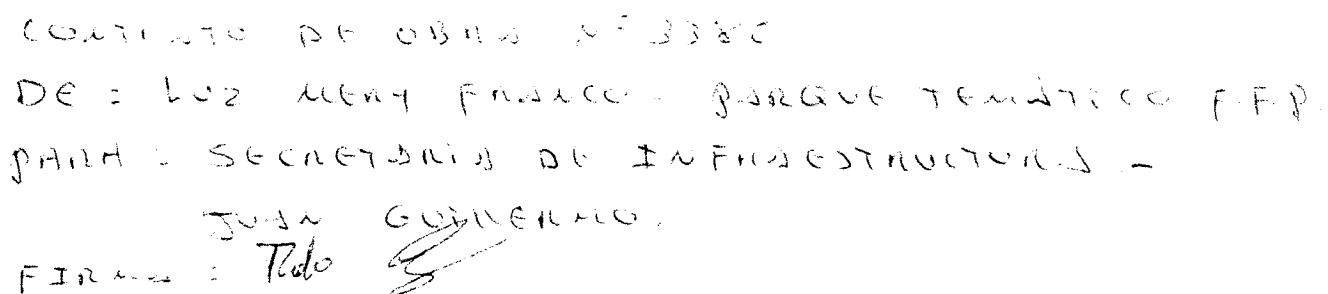 CONTRATO DE OBRA Nº
DE : LUZ MERY FRANCO - PARQUE TEMÁTICO F.F.P.
PARA : SECRETARIA DE INFRAESTRUCTURA -
JUAN GUILLERMO.
FIRMA :